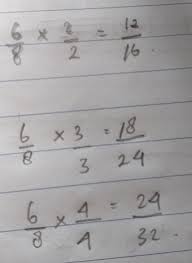 6/8 × 2/2 = 12/16.
6/8 × 3/3 = 18/24
6/8 × 4/4 = 24/32.